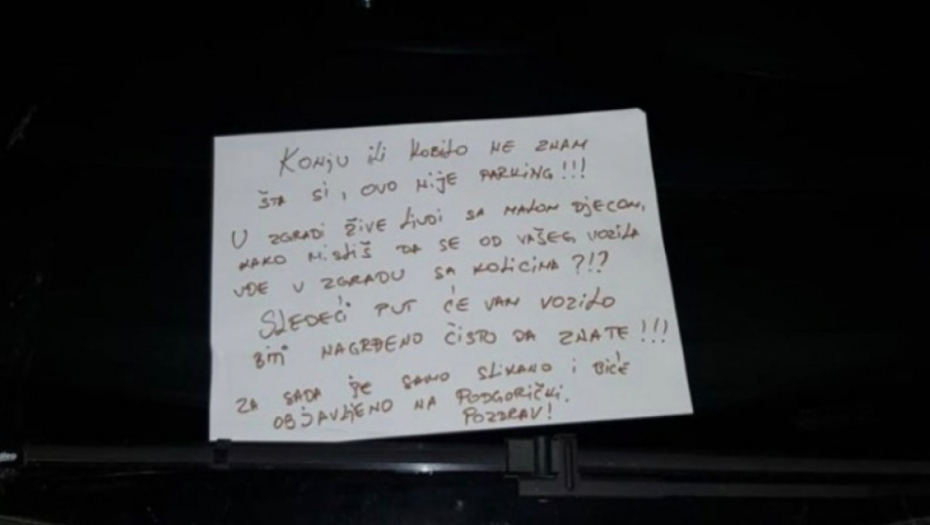 KONJU ILI KOBILO NE ZNAM
ŠTA SI, OVO NIJE PARKING!!!
U ZGRADI ŽIVE LJUDI SA MALOM DJECOM,
KAKO MISLIŠ DA SE OD VAŠEG VOZILA
UĐE U ZGRADU SA KOLICIMA ?!?
SLEDEĆI PUT ĆE VAM VOZILO
BITI NAGRĐENO ČISTO DA ZNATE!!!
ZA SADA JE SAMO SLIKANO I BIĆE
OBJAVLJENO NA PODGORIČKI.
POZDRAV!